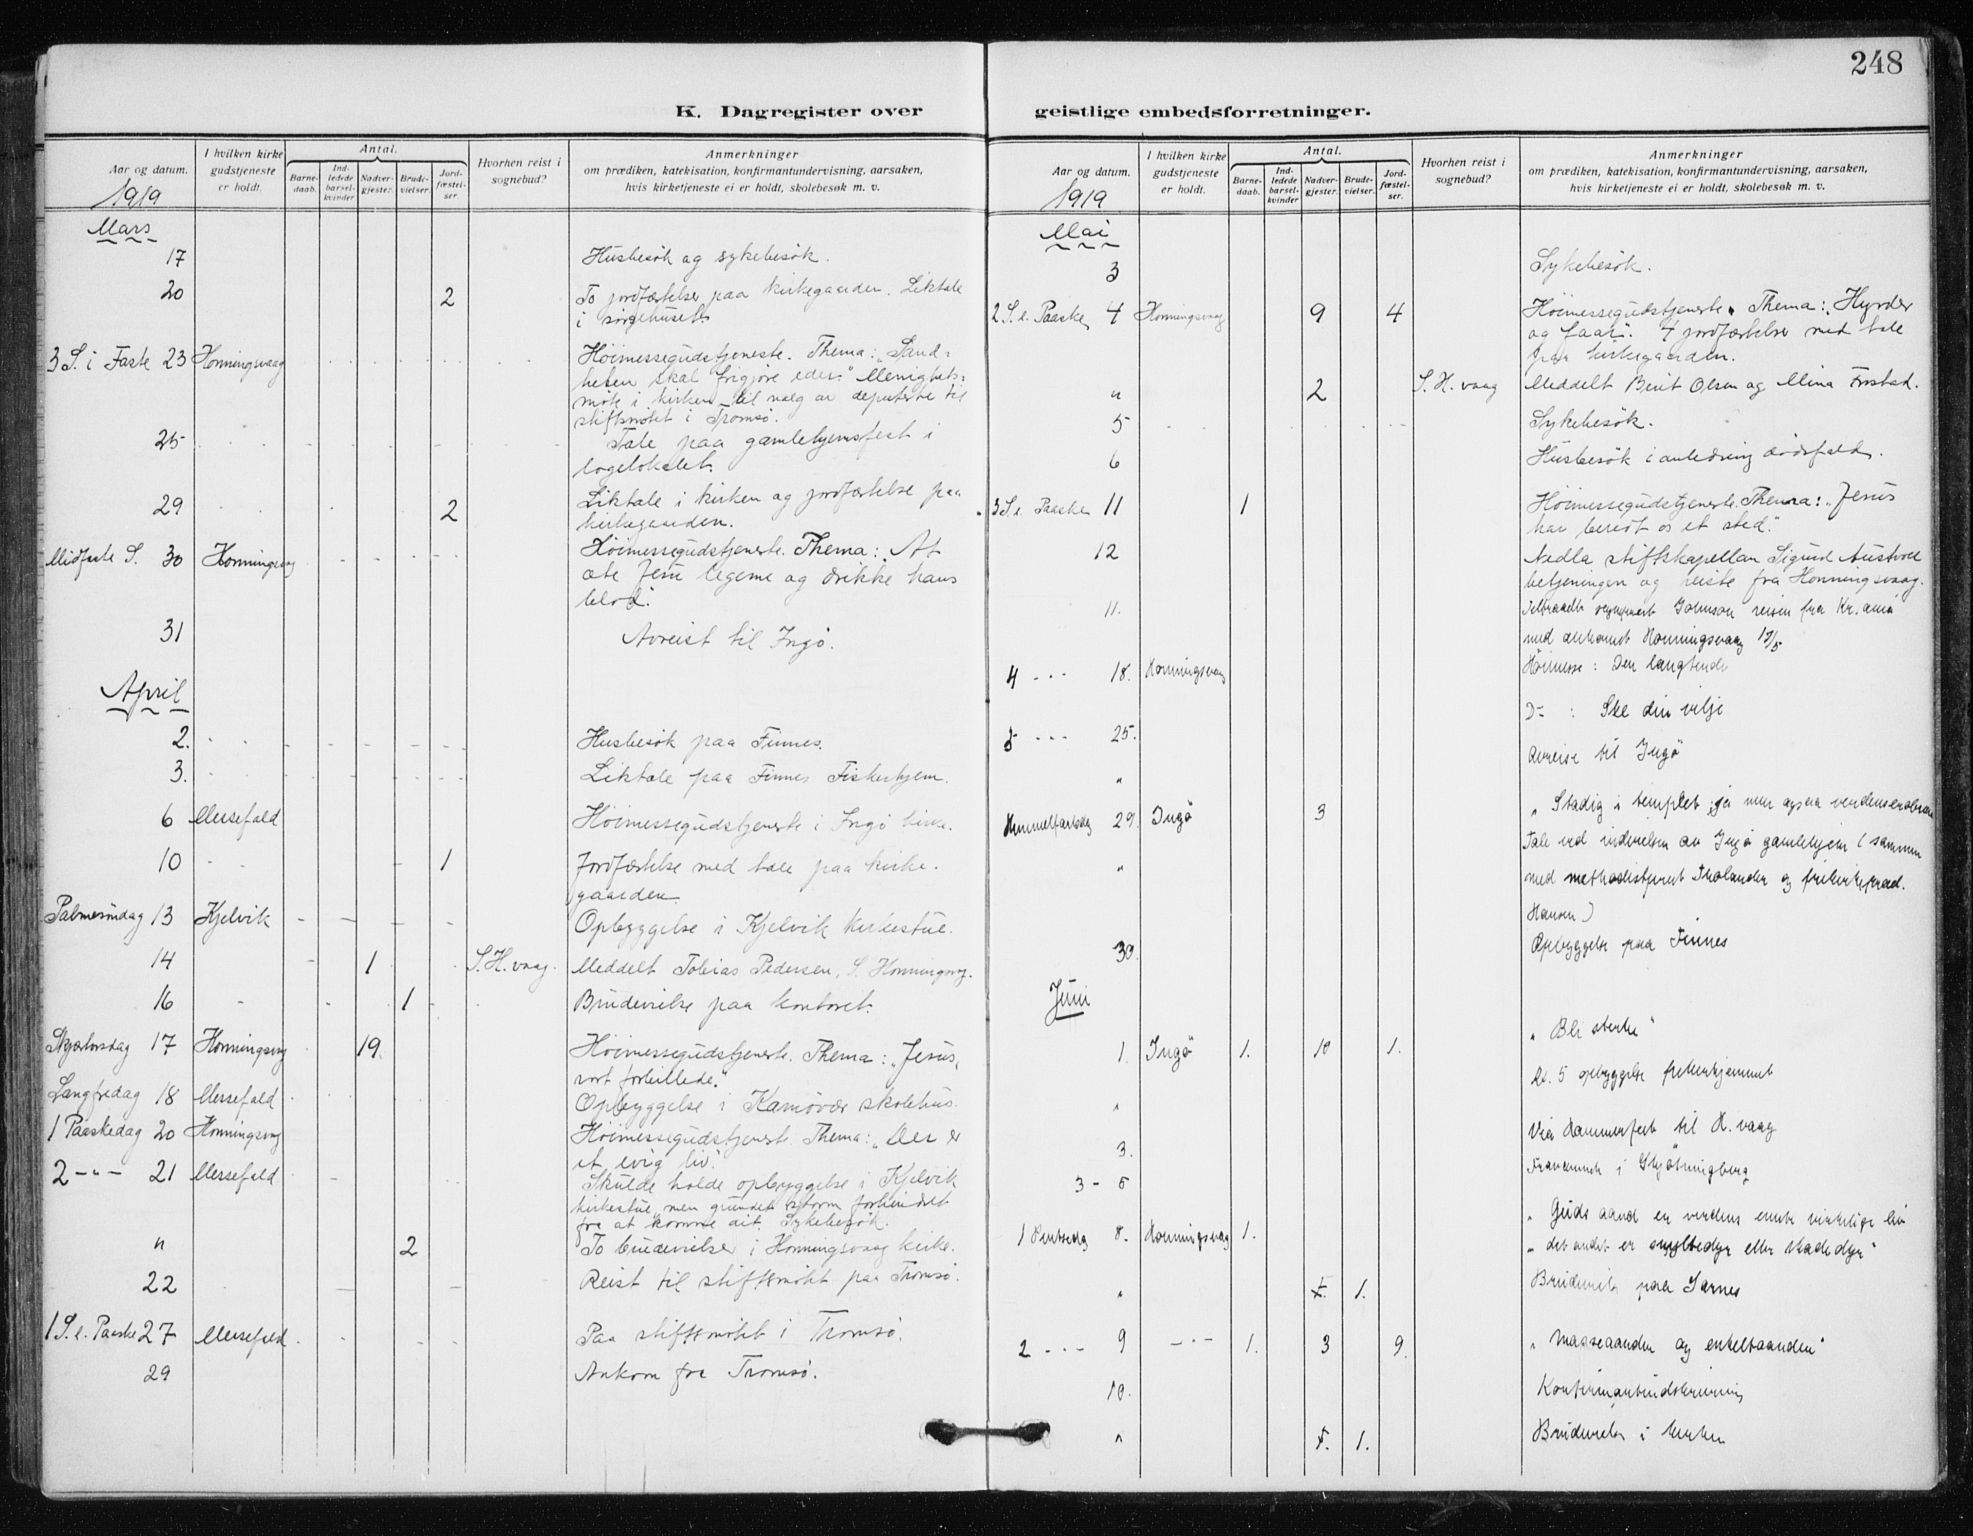 248
K. Dagregister over
geistlige embedsforretninger.
Aar og datum.
1919
I hvilken kirke gudstjeneste er holdt.
Antal.
Barne-daab.
Ind-ledede barsel-kvinder
Nadver-gjester.
Brude-vielser.
Jord-fæstel-ser.
Hvorhen reist i sognebud?
Anmerkninger
om prædiken, katekisation, konfirmantundervisning, aarsaken,
hvis kirketjeneste ei er holdt, skolebesøk m. v.
Mars
17 Husbesök og sykebesök.
20 2 To jordfæstelser paa kirkegaarden. Liktale
i sørgehuset
3 S. i Faste 23 Honningsvaag Höimessegudstjeneste. Thema: „Sand-
heten skal frigjöre eder." Menighets-
möte i kirken til valg av deputerte til
stiftsmötet i Tromsø.
25 Tale paa gamlehjemsfest i
logelokalet.
29 2 Liktale i kirken og jordfæstelse paa
kirkegaarden.
Midfaste S. 30 Honningsvag Höimessegudstjeneste. Thema: At
æte Jesu legeme og drikke hans
blod."
31 Avreist til Ingø.
April
2. Husbesök paa Finnes.
3. Liktale paa Finnes Fiskerhjem.
6 Messefald Höimessegudstjeneste i Ingø kirke.
10 1 Jordfæstelse med tale paa kirke-
gaarden.
Palmesöndag 13 Kjelvik Opbyggelse i Kjelvik kirkestue.
14 1 S. H. vaag. Meddelt Tobias Pedersen, S. Honningsvg.
16 1 Brudevielse paa kontoret.
Skjærtorsdag 17 Honningsvg 19. Höimessegudstjeneste. Thema: „Jesus,
vort forbillede."
Langfredag 18 Messefald Opbyggelse i Kamøvær skolehus.
1 Paaskedag 20 Honningsvg Höimessegudstjeneste. Thema: „Der er
et evig liv."
2 -"- 21 Messefald Skulde holde opbyggelse i Kjelvik
kirkestue, men grundet storm forhindret
fra at komme dit. Sykebesök.
" 2 To brudevielser i Honningsvaag kirke.
22 Reist til stiftsmötet paa Tromsø.
1 S. e. Paaske 27 Messefald Paa stiftsmötet i Tromsø.
29 Ankom fra Tromsø.
Aar og datum.
1919
I hvilken kirke gudstjeneste er holdt.
Antal.
Barne-daab.
Ind-ledede barsel-kvinder
Nadver-gjester.
Brude-vielser.
Jord-fæstel-ser.
Hvorhen reist i sognebud?
Anmerkninger
om prædiken, katekisation, konfirmantundervisning, aarsaken,
hvis kirketjeneste ei er holdt, skolebesøk m. v.
Mai
3 Sykebesök.
2 S. e. Paaske 4 Honningsvaag 9 4 Höimessegudstjeneste. Thema: „Hyrder
og faar". 4 jordfæstelser med tale
paa kirkegaarden.
" 2 S. H. vaag Meddelt Berit Olsen og Mina
5 Sykebesök.
6 Husbesök i anledning dödsfald.
3 S. e. Paaske 11 1 Höimessegudstjeneste. Thema: „Jesus
har beredt os et sted."
12 Nedla stiftskapellan Sigurd Austvoll
betjeningen og reiste fra Honningsvaag.
11. Tiltraadte sogneprest Johnson reisen fra Kr.ania
med ankomst Honningsvaag 17/5
4 - - - 18. Honningsvaag Höimesse: Den
5 - - - 25. D- : Ske din vilje
" Avreise til Ingö
Himmelfartsdag 29. Ingö 3 „Stadig i templet, ja men ogsaa
" Tale ved indvielsen av Ingö gamlehjem (sammen
med methodistprest Tholander og frikirkepræd.
Hansen)
30. Opbyggelse paa Finnes
Juni
1. Ingö 1. 10 1. „Bli sterke"
" Kl. 5 opbyggelse fiskerhjemmet
3. Via Hammerfest til H. vaag
3 - 5 i Skjötningberg
1 Pintsedag 8. Honningsvaag 1. „Guds aand er verdens eneste virkelige liv
„det andet er snyltedyr eller skadedyr"
" 1. Brudevielse paa Sarnes
2 - - - 9 - " - 1. 3 9. „Masseaanden og enkeltaanden"
10. Konfirmantindskrivning
" 1. Brudevielse i kirken